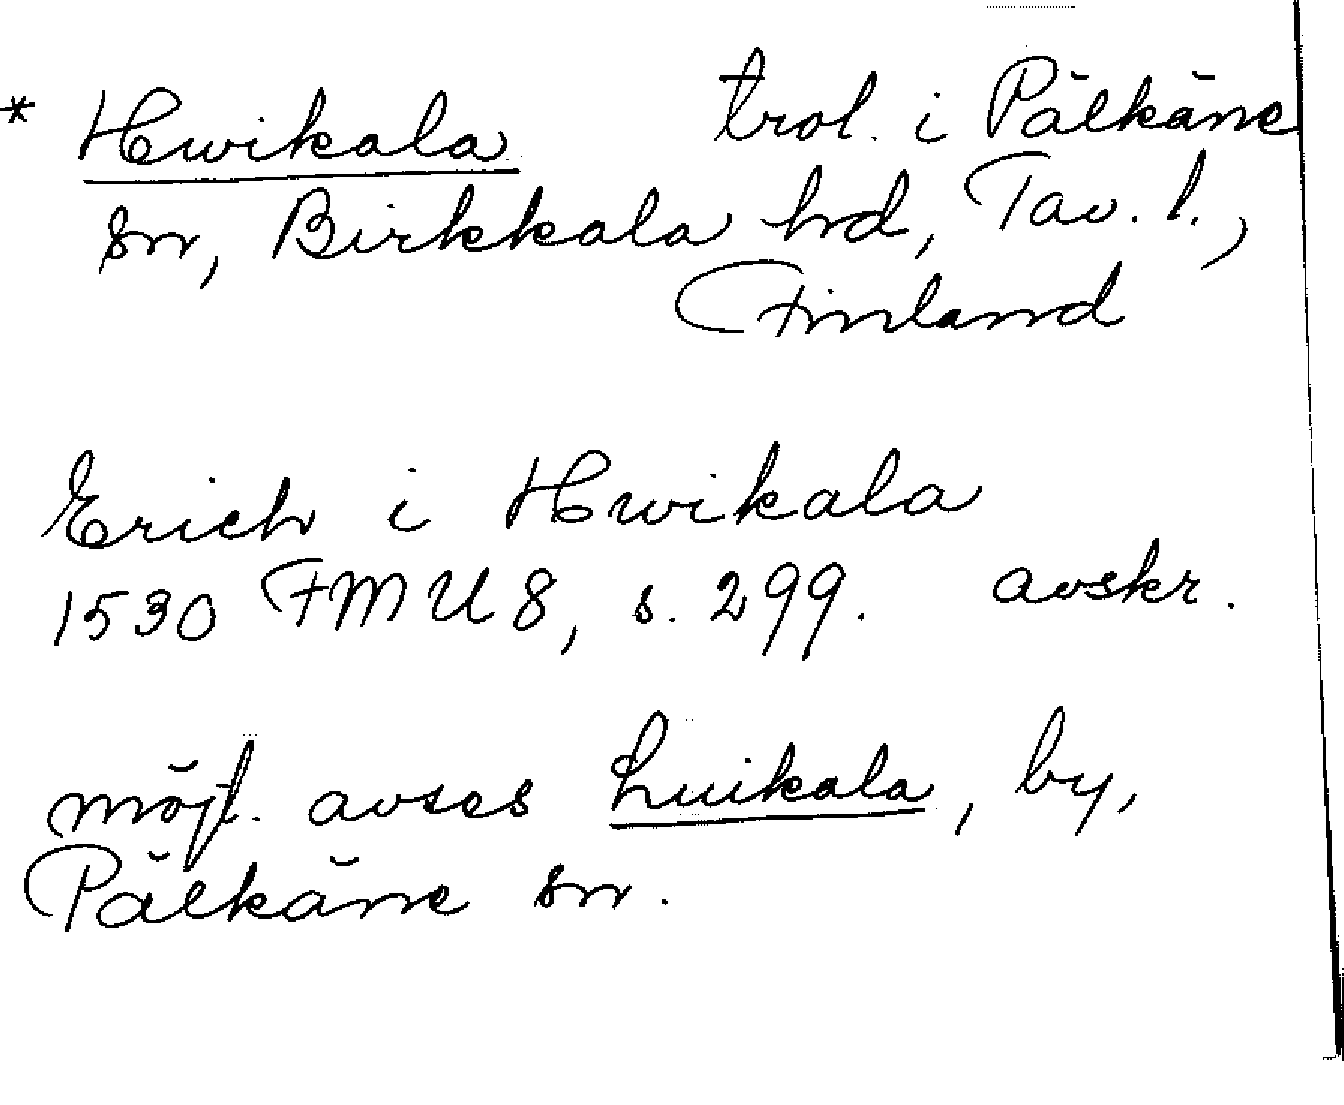 * Hwikala trol. i Pälkäne
sn, Birkkala hd, Tav. l.,
Finland
Erich i Hwikala
1530 FMU 8, s. 299. avskr.
möjl. avses Luikala, by,
Pälkäne sn.